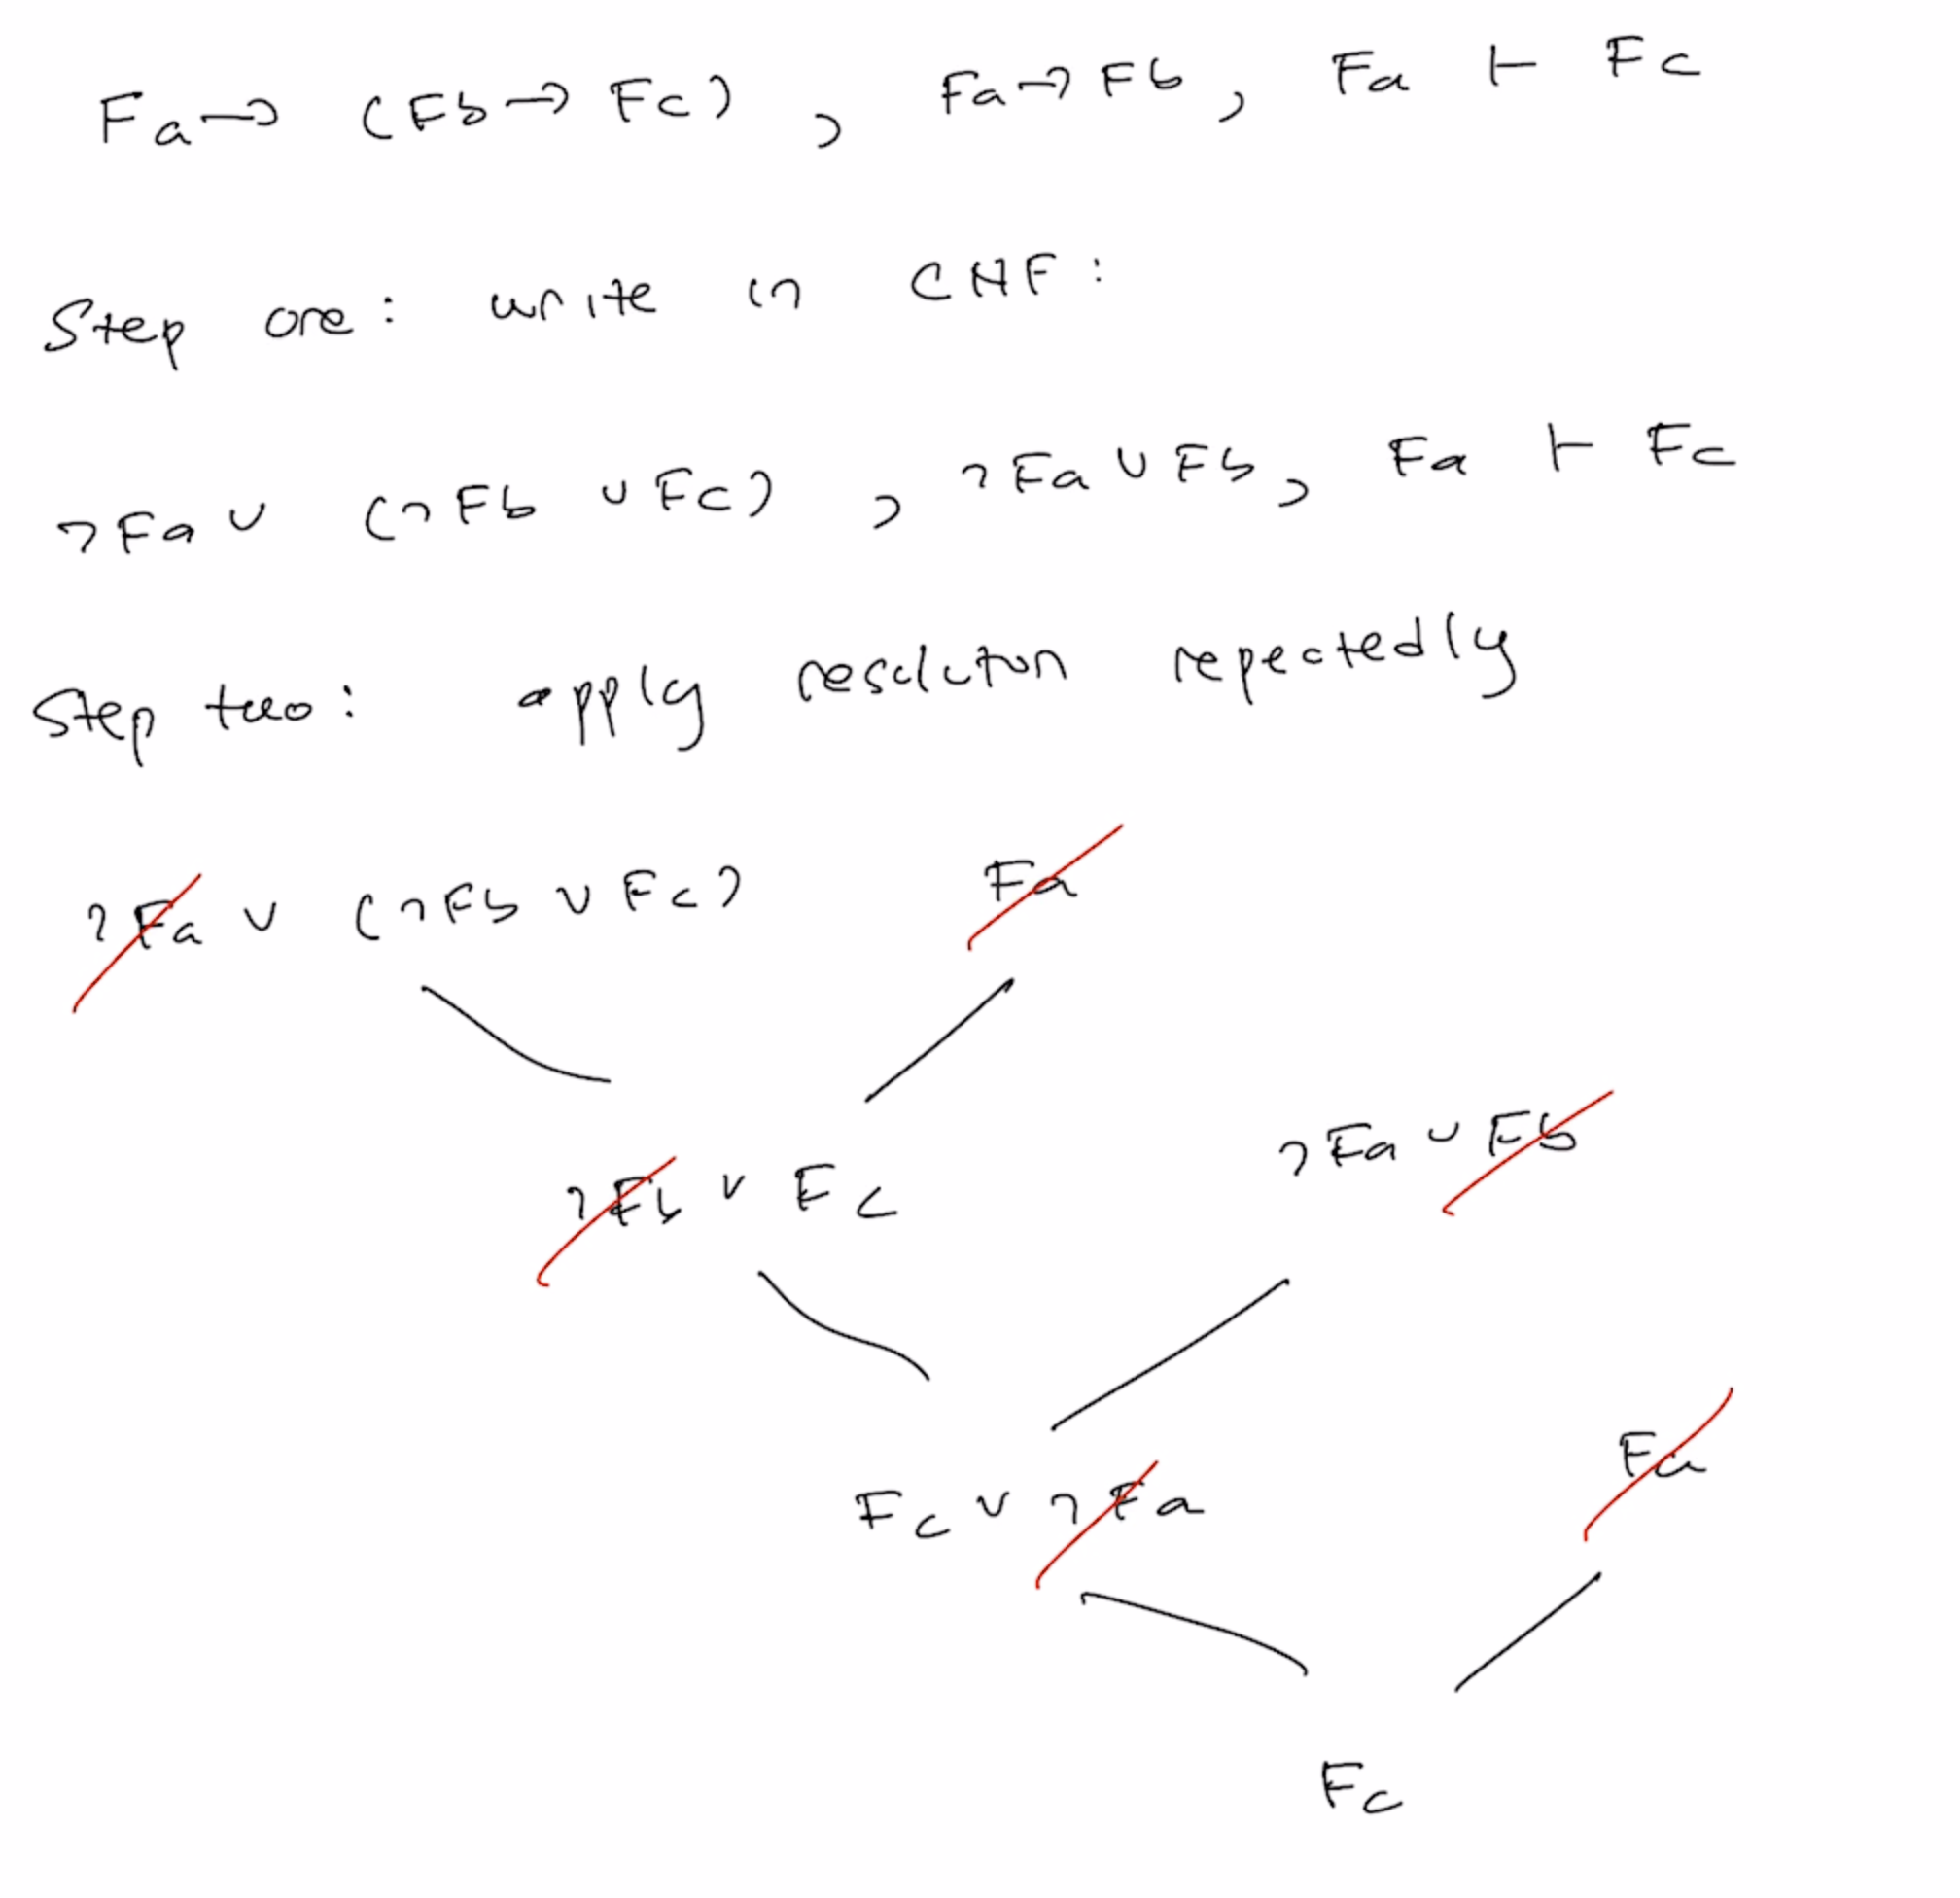 Fa → (Fb → Fc) , Fa → Fb , Fa ⊢ Fc
Step one: write in CNF:
¬Fa ∨ (¬Fb ∨ Fc) , ¬Fa ∨ Fb , Fa ⊢ Fc
Step two: apply resolution repeatedly
¬Fa ∨ (¬Fb ∨ Fc) Fa
¬Fa ∨ Fb
¬Fb ∨ Fc
Fa
Fc ∨ ¬Fa
Fc